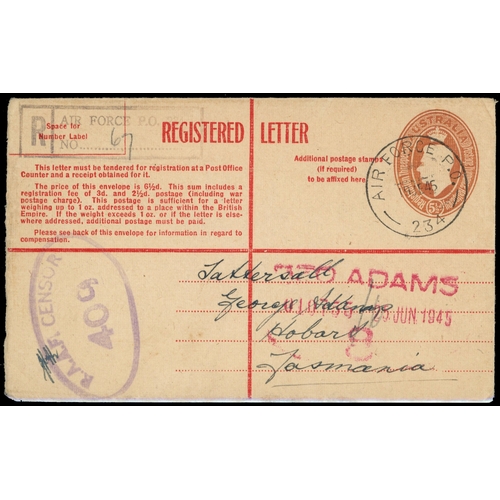 R
Space for
Number Label
AIR FORCE P.O.
NO. 67
REGISTERED LETTER
This letter must be tendered for registration at a Post Office
Counter and a receipt obtained for it.
The price of this envelope is 6½d. This sum includes a
registration fee of 3d. and 2½d. postage (including war
postage charge). This postage is sufficient for a letter
weighing up to 1 oz. addressed to a place within the British
Empire. If the weight exceeds 1 oz. or if the letter is else-
where addressed, additional postage must be paid.
Please see back of this envelope for information in regard to
compensation.
Additional postage stamps
(if required)
to be affixed here.
AUSTRALIA
6½d
AIR FORCE P.O.
234
R.A.A.F. CENSOR
409
Tattersall
George Adams
Hobart
Tasmania
GEO ADAMS
JUN 1945
8